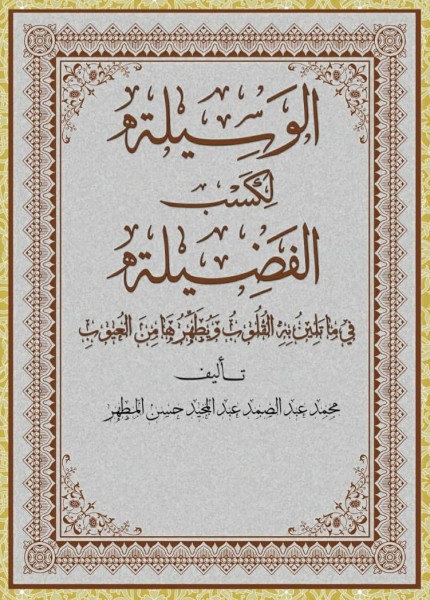 الوَسِيلة
لِكَسْب
الفَضِيلة
في ما تلين به القُلُوبُ وَيُطَهِّرُهَا مِنَ العُيُوبِ
تأليف
محمد عبد الصمد عبد المجيد حسن المطهر